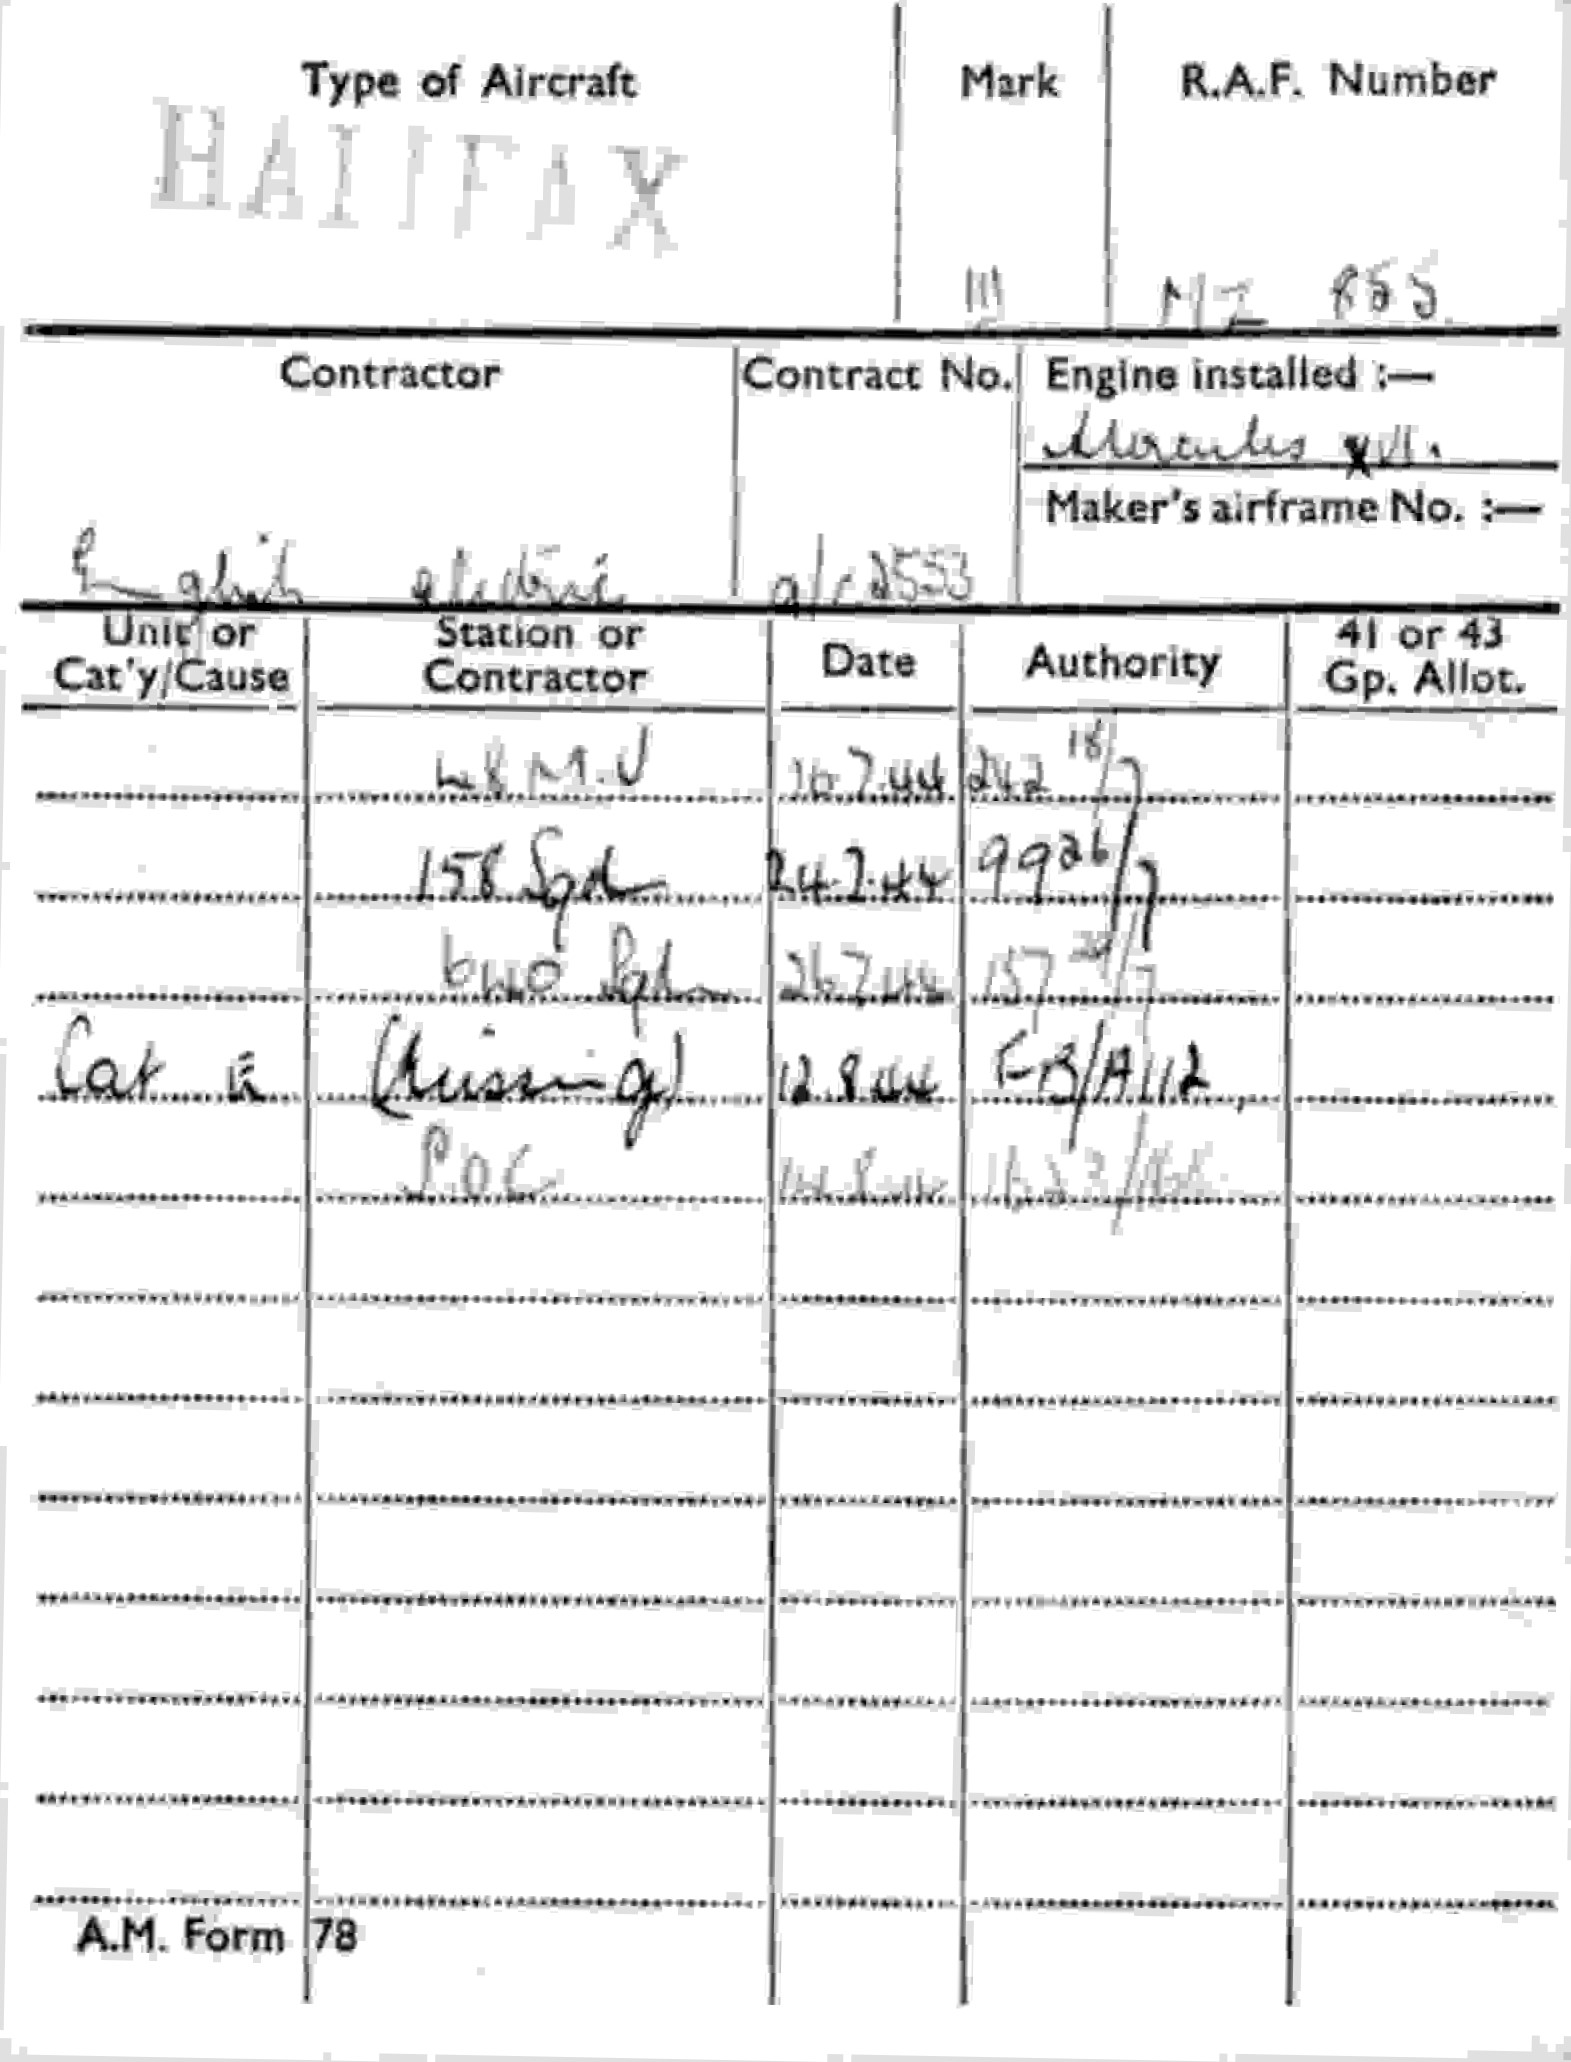 Type of Aircraft Mark R.A.F. Number
HALIFAX
III MZ 855.
Contractor Contract No. Engine installed :—
Hercules XVI.
Maker's airframe No. :—
English electric a/c 2553
Unit or Cat'y/Cause Station or Contractor Date Authority 41 or 43 Gp. Allot.
48 M.U 16.7.44 242 18/7
158 Sqdn 24.7.44 99 26/7
640 Sqdn 26.7.44 157 /7
Cat E (Missing) 12.8.44 FB/A112
S.O.C 14.8.44
A.M. Form 78